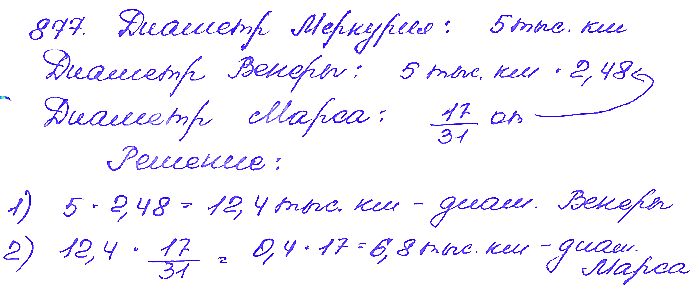 877. Диаметр Меркурия: 5 тыс. км
Диаметр Венеры: 5 тыс. км · 2,48
Диаметр Марса: 17/31 от
Решение:
1) 5 · 2,48 = 12,4 тыс. км - диам. Венеры
2) 12,4 · 17/31 = 0,4 · 17 = 6,8 тыс. км - диам.
Марса